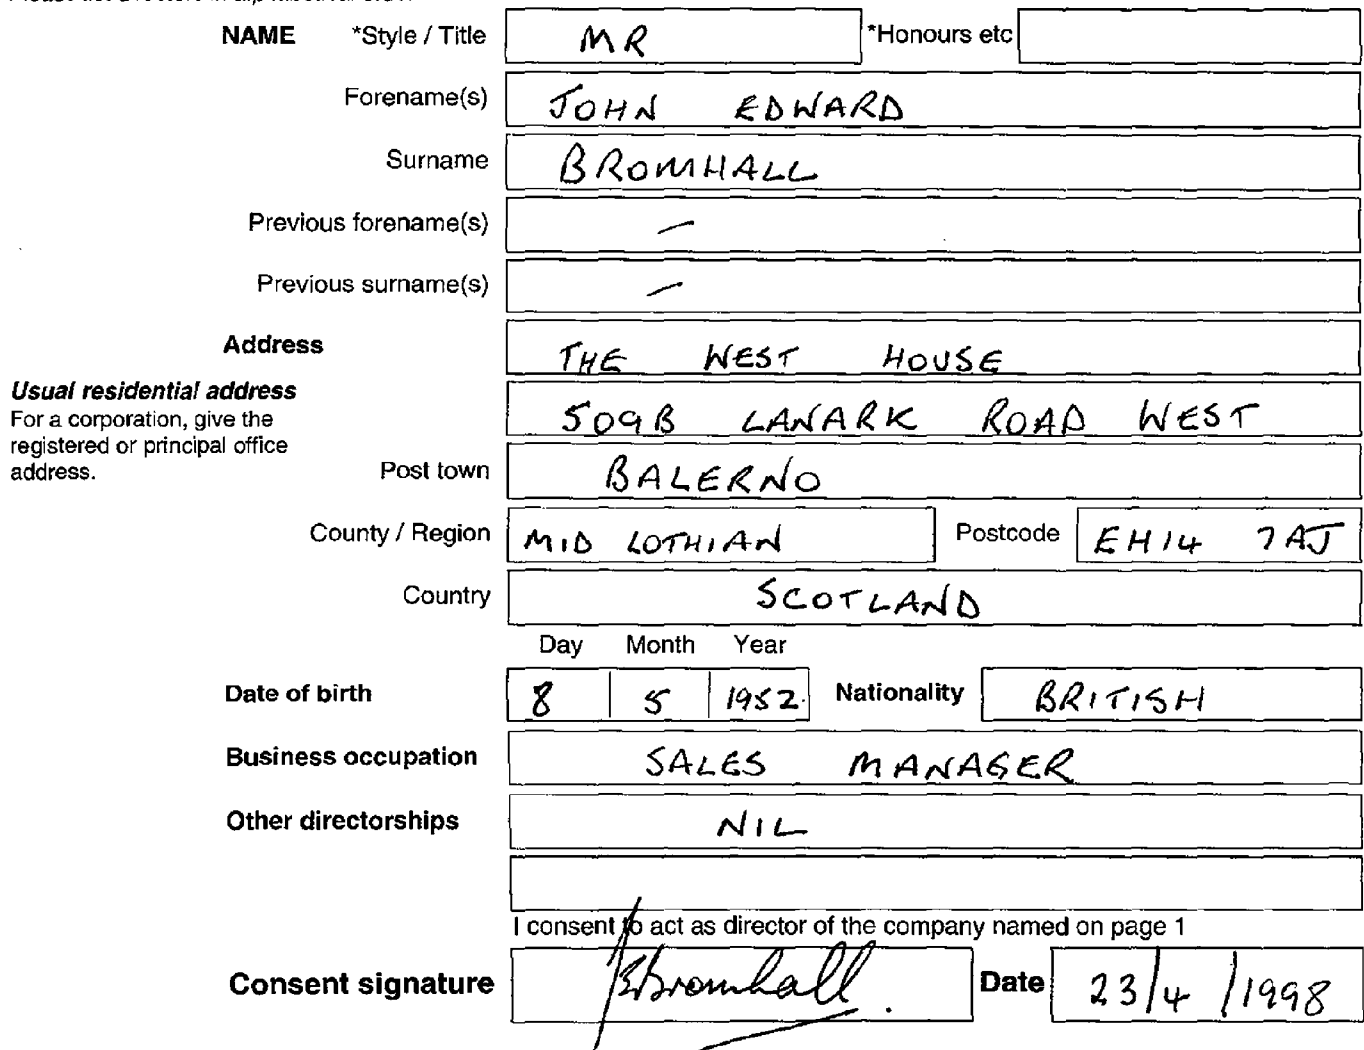 NAME *Style / Title MR *Honours etc
Forename(s) JOHN EDWARD
Surname BROMHALL
Previous forename(s) —
Previous surname(s) —
Address THE WEST HOUSE
Usual residential address 509B LANARK ROAD WEST
For a corporation, give the
registered or principal office
address. Post town BALERNO
County / Region MID LOTHIAN Postcode EH14 7AJ
Country SCOTLAND
Day Month Year
Date of birth 8 5 1952 Nationality BRITISH
Business occupation SALES MANAGER
Other directorships NIL
I consent to act as director of the company named on page 1
Consent signature Bromhall Date 23/4/1998